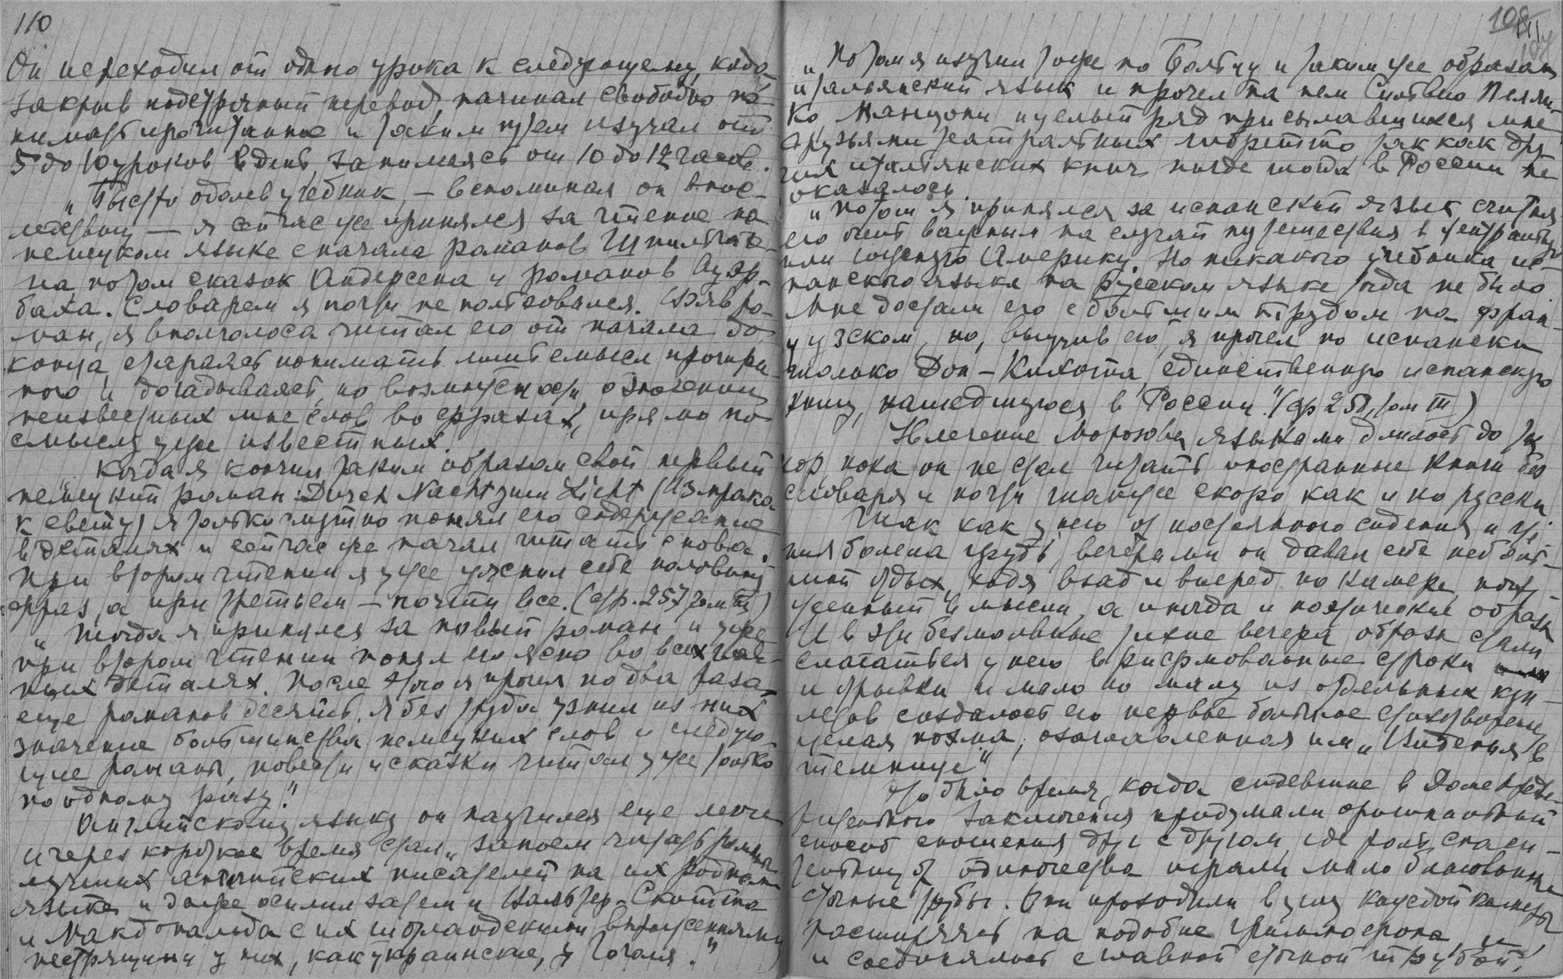 110
Он переходил от одного урока к следующему, когда,
закрыв подстрочный перевод, начинал свободно по-
нимать прочитанное и таким путем изучал от
5 до 10 уроков в день, занимаясь от 10 до 12 часов.
"Быстро одолев учебник, — вспоминал он впос-
ледствии — я сейчас же принялся за чтение на
немецком языке сначала романов Шпильгаге-
на потом сказок Андерсена и романов Ауэр-
баха. Словарем я почти не пользовался. Взяв ро-
ман, я вполголоса читал его от начала до
конца стараясь понимать лишь смысл прочитан-
ного и догадываясь, по возможности о значении
неизвестных мне слов во фразах, прямо по
смыслу уже известных.
Когда я кончил таким образом свой первый
немецкий роман: Durch Nacht zum Licht (Из мрака
к свету) я только смутно понял его содержание
в деталях и сейчас же начал читать снова.
При втором чтении я уже уяснил себе половину
фраз, а при третьем — почти все. (стр. 257 том III)
"Тогда я принялся за новый роман и уже
при втором чтении понял его ясно во всех глав-
ных деталях. После этого я прочел по два раза
еще романов десять. Я без труда узнал из них
значение большинства немецких слов и следую-
щие романы, повести и сказки читал уже только
по одному разу."
Английскому языку он научился еще легче
и через короткое время стал "запоем читать романы
лучших английских писателей на их родном
языке и даже осилил затем и Вальтер-Скотта
и Макдональда с их шотландскими выражениями
пестрящими у них, как украинские, у Гоголя."
111
"Потом я изучил тоже по Болтцу и таким же образом
итальянский язык и прочел на нем Сильвио Пелли-
ко Манцони и целый ряд присылавшихся мне
друзьями театральных либретто так как дру-
гих итальянских книг нигде тогда в России не
оказалось.
"Потом я принялся за испанский язык, считая
его очень важным на случай путешествия в центральную
или южную Америку. Но никакого учебника ис-
панского языка на русском языке тогда не было
Мне достали его с большим трудом на фран-
цузском, но, выучив его, я прочел по испански
только Дон-Кихота, единственную испанскую
книгу, нашедшуюся в России" (стр 258, том III)
Увлечение Морозова языками длилось до тех
пор пока он не стал читать иностранные книги без
словаря и почти так же скоро как и по русски
Так как у него от постоянного сидения и чте-
ния болела грудь вечерами он давал себе неболь-
шой отдых, ходя взад и вперед по камере, погру-
женный в мысли, а иногда и поэтические образы
И в эти безмолвные тихие вечера образы стали
слагаться у него в рифмованные строки
и отрывки и мало по малу из отдельных куп-
летов создалось его первое большое стихотворение
целая поэма, озаглавленная им "Видения в
темнице"
Это было время, когда сидевшие в Доме предва-
рительного заключения придумали оригинальный
способ сношения друг с другом, где роль спаси-
тельниц от одиночества играли мало благовонные
сточные трубы. Они проходили в углу каждой камеры
расширяясь на подобие граммофона
и соединялись с главной сточной трубой